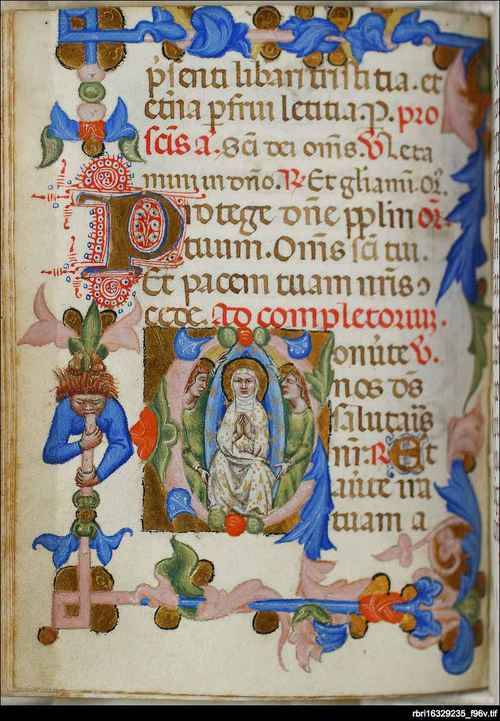 p̄senti libari tristitia. et
et̄na ꝑfrui letitia. P. pro
sc̄is a̅. Sc̄i dei om̄s. V. leta
mini in dn̄o. R. Et gl̄iami. Or̄.
Protege dn̄e pp̄lm
tuum. Om̄s sc̄i tui.
Et pacem tuam nr̄is ɔ
cede. Ad completorium.
Conūte V.
nos ds̄
salutar̄is
R. Et
aūte ira
tuam a
rbrl16329235_f96v.tif